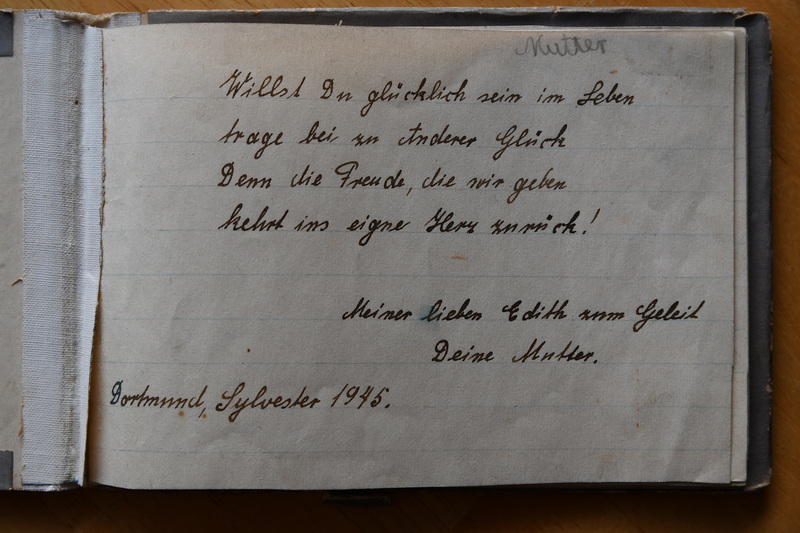 Mutter
Willst Du glücklich sein im Leben
trage bei zu Anderer Glück
Denn die Freude, die wir geben
kehrt ins eigne Herz zurück!
Meiner lieben Edith zum Geleit
Deine Mutter.
Dortmund, Sylvester 1945.